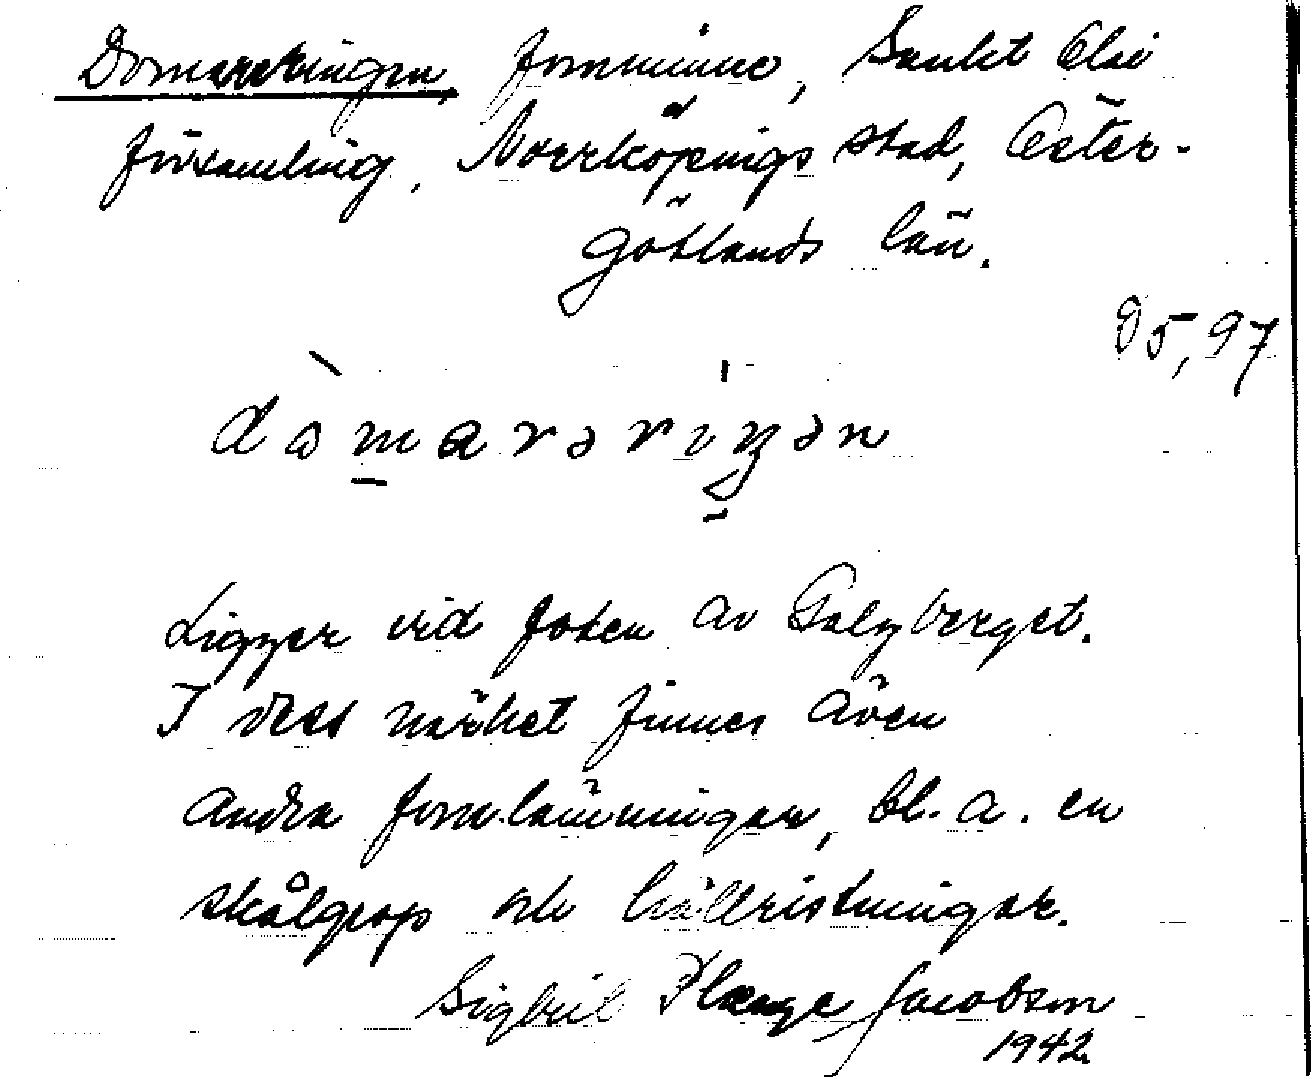 Domareringen, fornminne, Sankt Olai
församling, Norrköpings stad, Öster-
götlands län.
95,97
dòmarəriŋən
Ligger vid foten av Galgberget.
I dess närhet finnes även
andra fornlämningar, bl. a. en
skålgrop och hällristningar.
Sigbrit Plænge Jacobson
1942